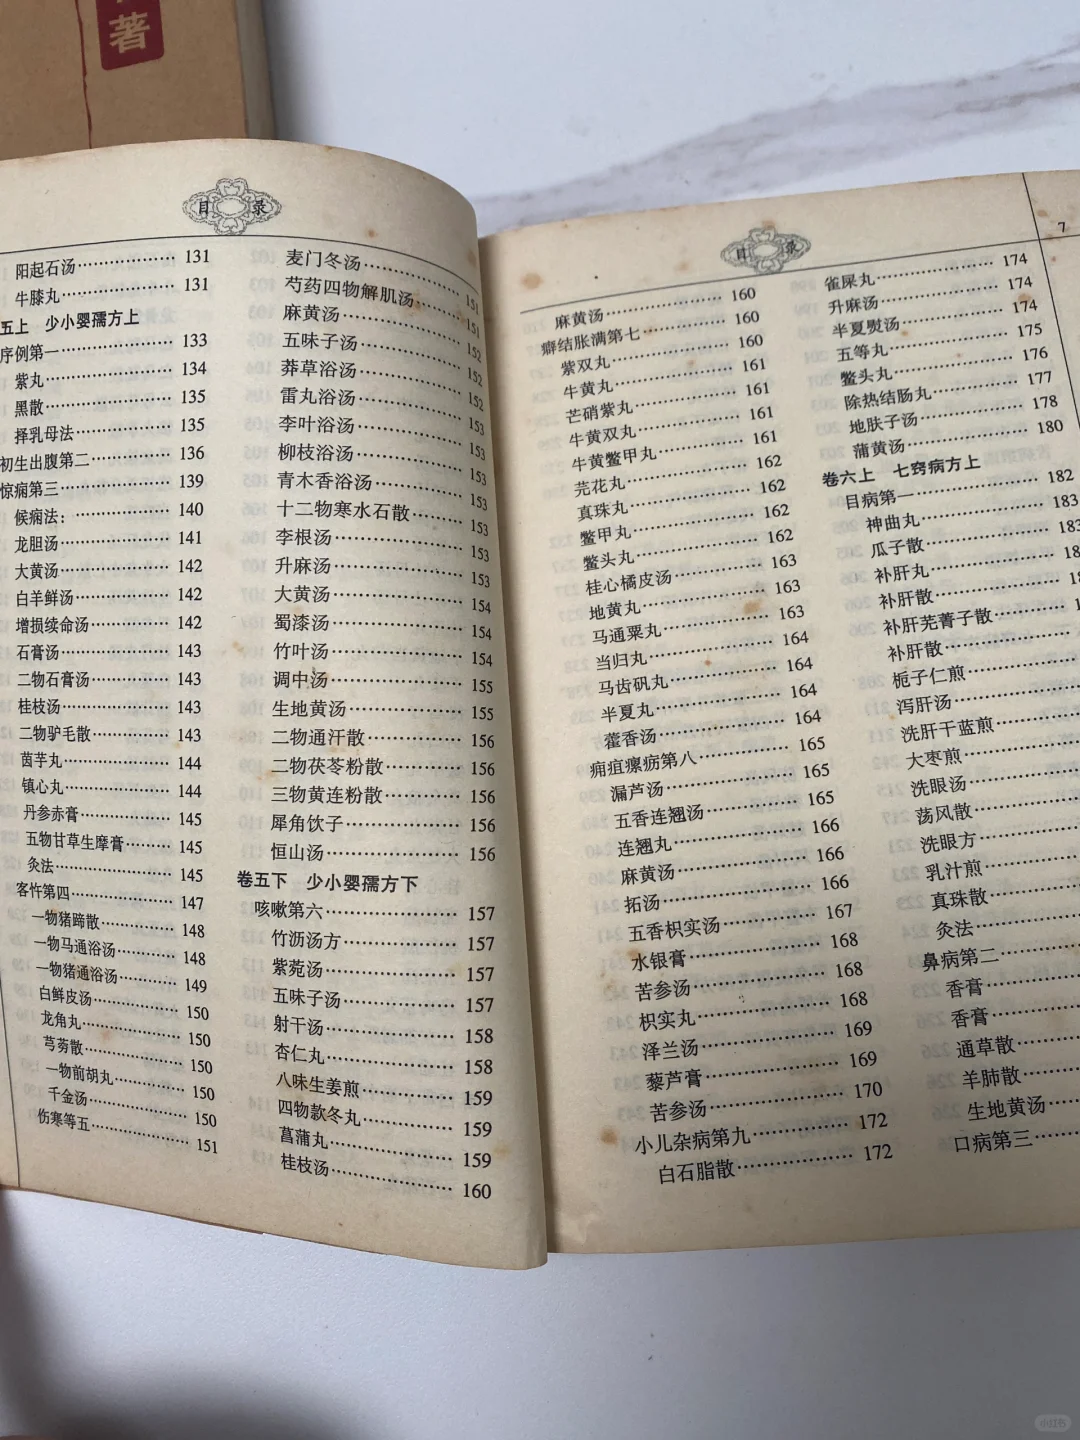 著
目 录
阳起石汤……………… 131
牛膝丸……………… 131
五上 少小婴孺方上
序例第一……………… 133
紫丸……………… 134
黑散……………… 135
择乳母法……………… 135
初生出腹第二……………… 136
惊痫第三……………… 139
候痫法:……………… 140
龙胆汤……………… 141
大黄汤……………… 142
白羊鲜汤……………… 142
增损续命汤……………… 142
石膏汤……………… 143
二物石膏汤……………… 143
桂枝汤……………… 143
二物驴毛散……………… 143
茵芋丸……………… 144
镇心丸……………… 144
丹参赤膏……………… 145
五物甘草生摩膏……………… 145
灸法……………… 145
客忤第四……………… 147
一物猪蹄散……………… 148
一物马通浴汤……………… 148
一物猪通浴汤……………… 149
白鲜皮汤……………… 150
龙角丸……………… 150
芎䓖散……………… 150
一物前胡丸……………… 150
千金汤……………… 150
伤寒等五……………… 151
麦门冬汤……………… 151
芍药四物解肌汤……………… 151
麻黄汤……………… 152
五味子汤……………… 152
莽草浴汤……………… 152
雷丸浴汤……………… 153
李叶浴汤……………… 153
柳枝浴汤……………… 153
青木香浴汤……………… 153
十二物寒水石散……………… 153
李根汤……………… 153
升麻汤……………… 153
大黄汤……………… 154
蜀漆汤……………… 154
竹叶汤……………… 154
调中汤……………… 155
生地黄汤……………… 155
二物通汗散……………… 156
二物茯苓粉散……………… 156
三物黄连粉散……………… 156
犀角饮子……………… 156
恒山汤……………… 156
卷五下 少小婴孺方下
咳嗽第六……………… 157
竹沥汤方……………… 157
紫菀汤……………… 157
五味子汤……………… 157
射干汤……………… 158
杏仁丸……………… 158
八味生姜煎……………… 159
四物款冬丸……………… 159
菖蒲丸……………… 159
桂枝汤……………… 160
目 录
7
麻黄汤……………… 160
癖结胀满第七……………… 160
紫双丸……………… 160
牛黄丸……………… 161
芒硝紫丸……………… 161
牛黄双丸……………… 161
牛黄鳖甲丸……………… 161
芫花丸……………… 162
真珠丸……………… 162
鳖甲丸……………… 162
鳖头丸……………… 162
桂心橘皮汤……………… 163
地黄丸……………… 163
马通粟丸……………… 163
当归丸……………… 164
马齿矾丸……………… 164
半夏丸……………… 164
藿香汤……………… 164
痈疽瘰疬第八……………… 165
漏芦汤……………… 165
五香连翘汤……………… 165
连翘丸……………… 166
麻黄汤……………… 166
拓汤……………… 166
五香枳实汤……………… 167
水银膏……………… 168
苦参汤……………… 168
枳实丸……………… 168
泽兰汤……………… 169
藜芦膏……………… 169
苦参汤……………… 170
小儿杂病第九……………… 172
白石脂散……………… 172
雀屎丸……………… 174
升麻汤……………… 174
半夏熨汤……………… 174
五等丸……………… 175
鳖头丸……………… 176
除热结肠丸……………… 177
地肤子汤……………… 178
蒲黄汤……………… 180
卷六上 七窍病方上
目病第一……………… 182
神曲丸……………… 183
瓜子散……………… 183
补肝丸………………
补肝散………………
补肝芜菁子散………………
补肝散………………
栀子仁煎………………
泻肝汤………………
洗肝干蓝煎………………
大枣煎………………
洗眼汤………………
荡风散………………
洗眼方………………
乳汁煎………………
真珠散………………
灸法………………
鼻病第二………………
香膏………………
香膏………………
通草散………………
羊肺散………………
生地黄汤………………
口病第三………………
小红书